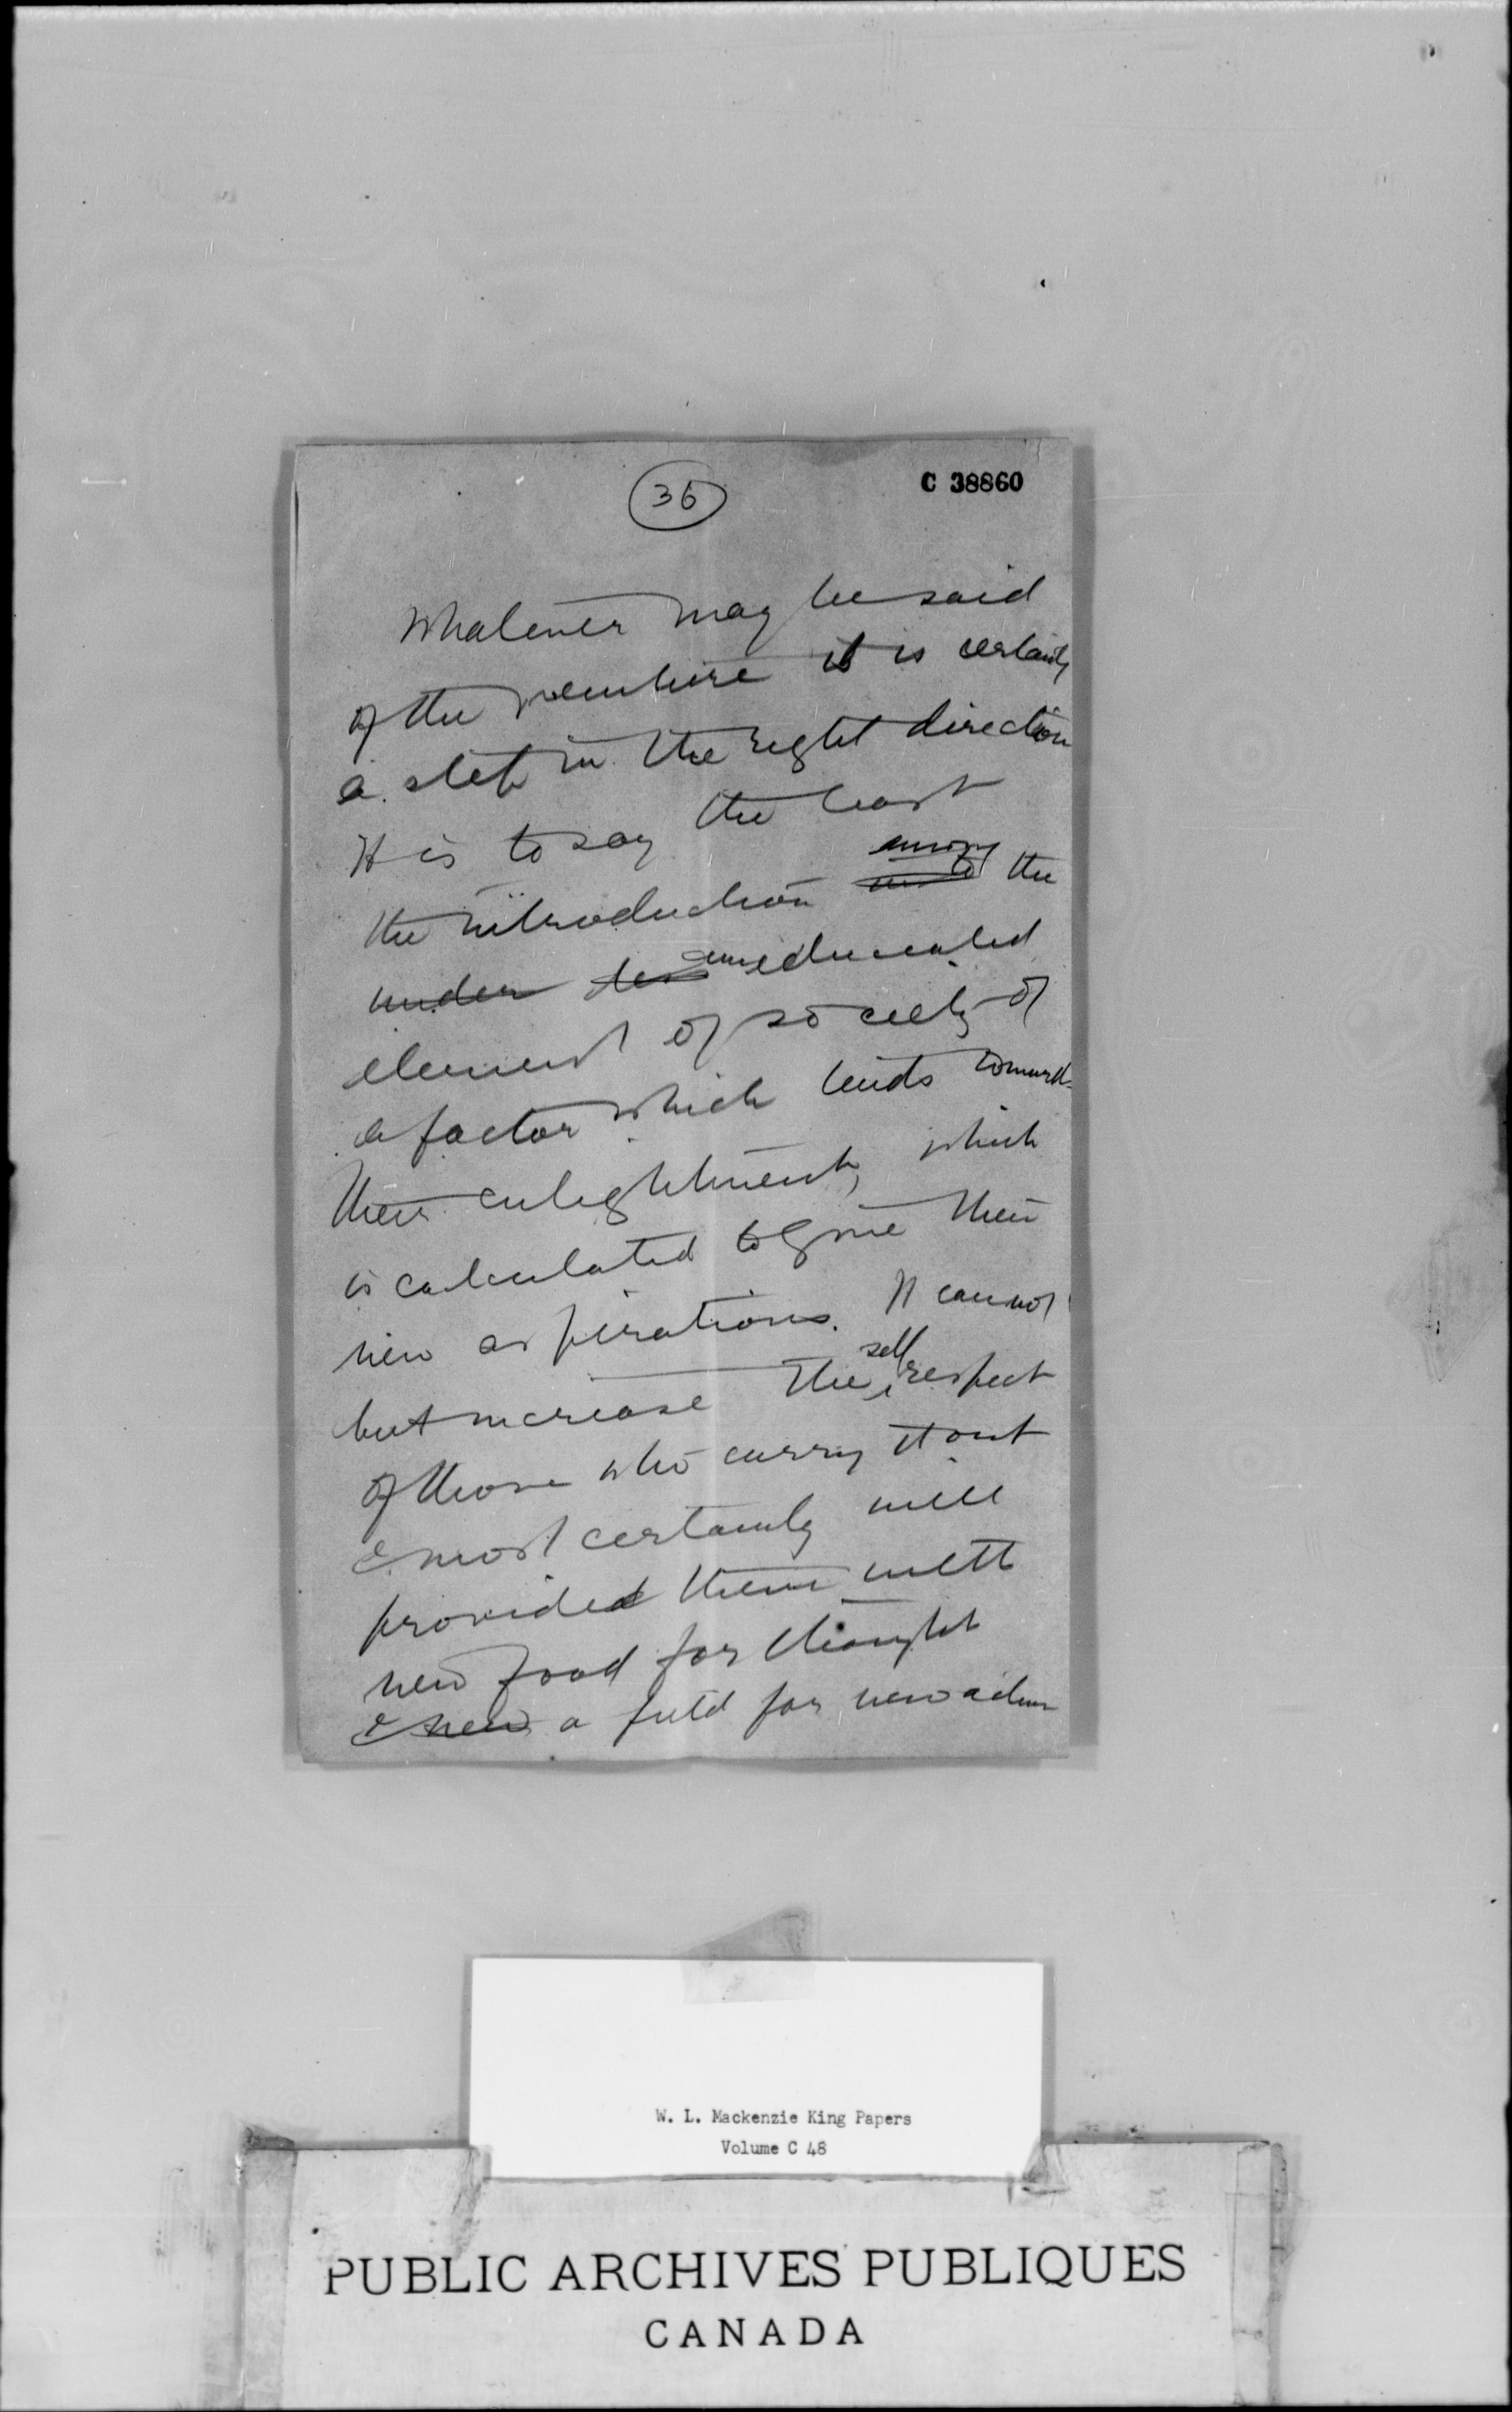 36
C 38860
Whatever may be said
of the venture it is certainly
a step in the right direction
It is to say the least
the introduction among the
uneducated
element of society of
a factor which tends towards
their enlightment, which
is calculated to give them
new aspirations. It cannot
but increase the self respect
of those who carry it out
& most certainly will
provided them with
new food for thought
& new a field for new
W. L. Mackenzie King Papers
Volume C 48
PUBLIC ARCHIVES PUBLIQUES
CANADA